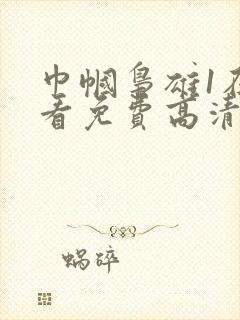 巾帼枭雄1在
看免费高清
蜗碎